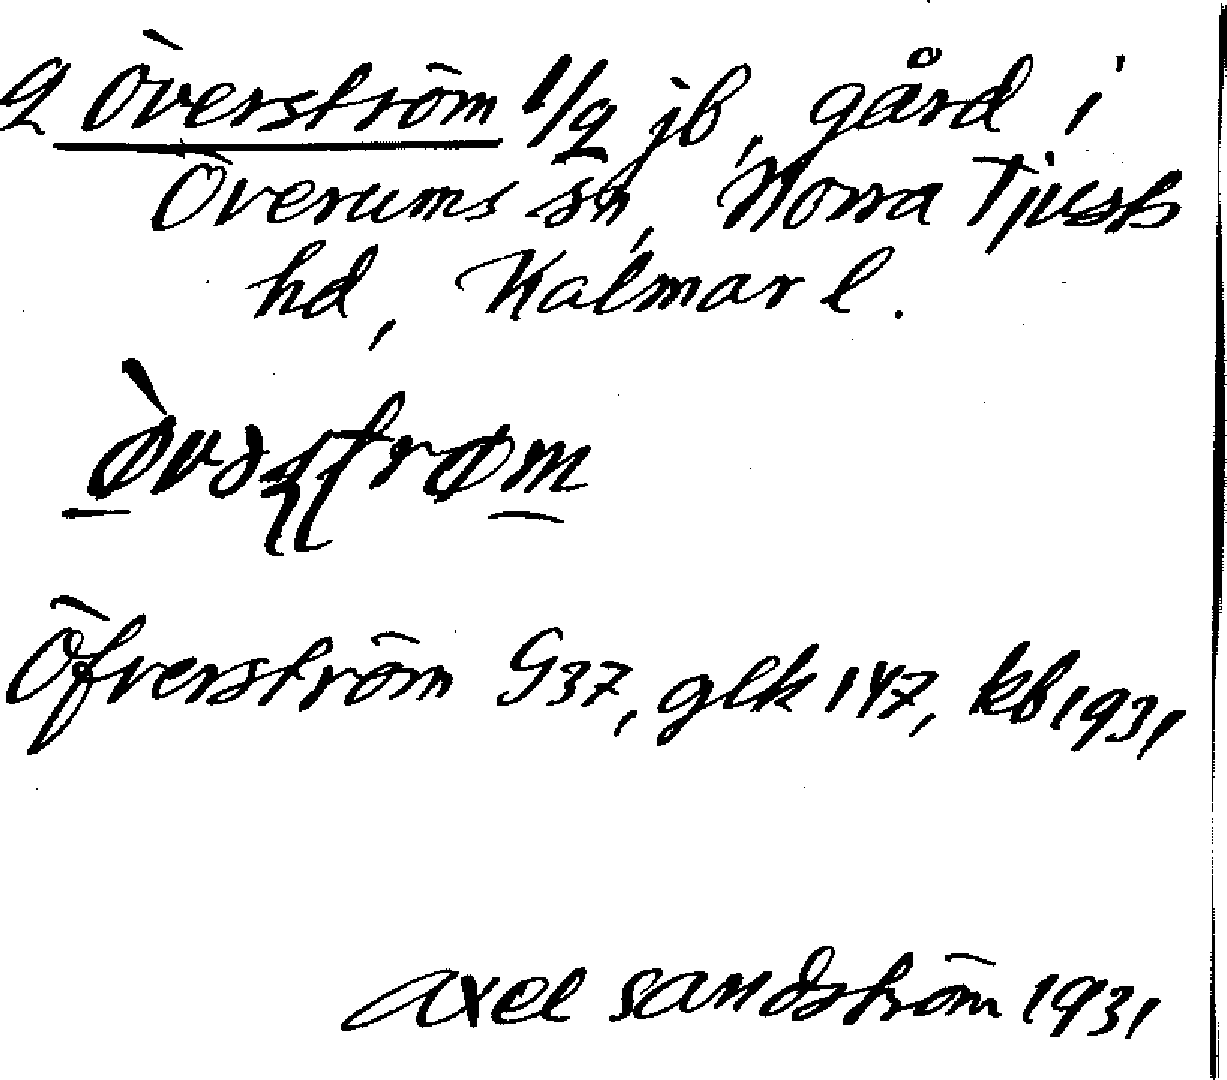 2 Överström 1/2 jb, gård i
Överums sn, Norra Tjusts
hd, Kalmar l.
Öfverström G37, glk 147, kb 1931
Axel Sandström 1931